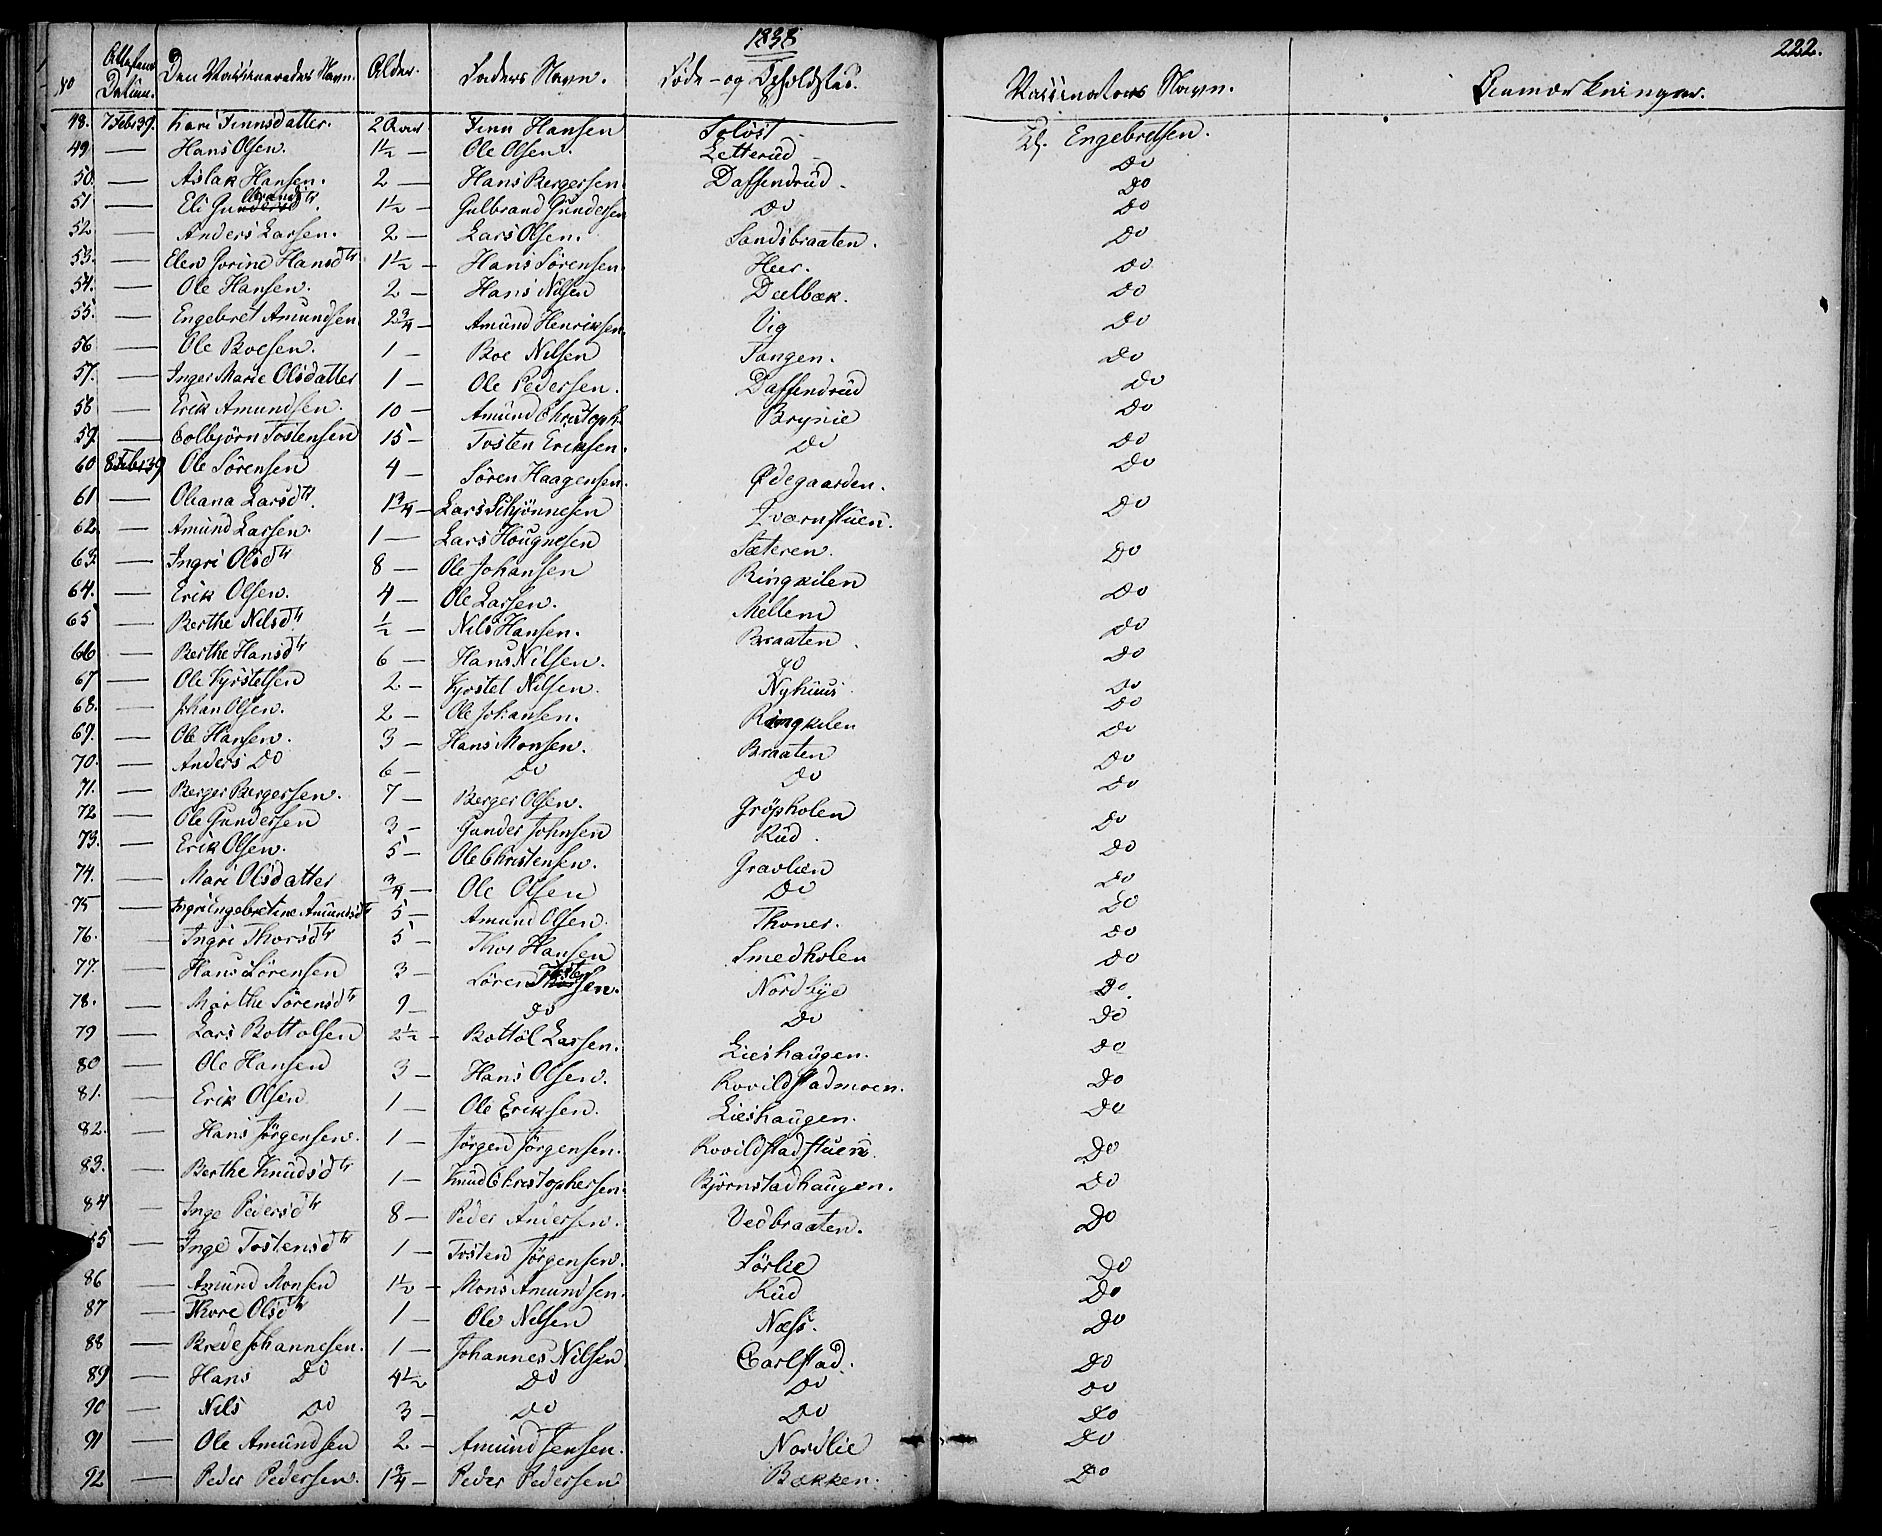 1838
222.
No Attestens Datum. Den Vaccineredes Navn. Alder. Faders Navn. Føde- og Opholdsted. Vaccinateurs Navn. Bemærkninger.
48. 7 Febr 39. Kari Finnsdatter. 2 Aar Finn Hansen Soløst Engebretsen.
49. — Hans Olsen. 1½ — Ole Olsen. Letterud Do
50. — Aslak Hansen. 2 — Hans Bergersen. Daffendrud. Do
51 — Eli Gulbrandsdtr. 1½ — Gulbrand Gundersen Do Do
52 — Anders Larsen. 2 — Lars Olsen. Sandsbraaten. Do
53. — Elen Gorine Hansdtr 1½ — Hans Sørensen. Heer. Do
54. — Ole Hansen. 2 — Hans Nilsen Deelbæk. Do
55. — Engebret Amundsen 2¾ — Amund Henriksen. Vig Do
56 — Ole Boesen. 1 — Boe Nilsen Tangen. Do
57. — Inger Marie Olsdatter 1 — Ole Pedersen. Daffendrud Do
58 — Erik Amundsen. 10 — Amund Christoph. Brynie Do
59. — Colbjørn Tostensen 15 — Tosten Eriksen. Do Do
60 8 Febr 39 Ole Sørensen 4 — Søren Haagensen. Ødegaarden. Do
61 — Oliana Larsdtr. 1¾ — Lars Schjønnesen Qværnstuen. Do
62. — Amund Larsen. 1 — Lars Hougnesen Sæteren. Do
63. — Ingri Olsdtr 8 — Ole Johansen Ringkilen Do
64. — Erik Olsen. 4 — Ole Larsen. Mellem Do
65 — Berthe Nilsdtr ½ — Nils Hansen. Braaten Do
66 — Berthe Hansdtr 6 — Hans Nilsen. Do Do
67 — Ole Kyrstelsen 2 — Kyrstel Nilsen. Nyhuus Do
68. — Johan Olsen. 2 — Ole Johansen. Ringkilen Do
69. — Ole Hansen. 3 — Hans Monsen. Braaten Do
70. — Anders Do 6 — Do Do Do
71. — Berger Bergersen. 7 — Berger Olsen. Grøpholen Do
72 — Ole Gundersen 3 — Gunder Johnsen Rud. Do
73. — Erik Olsen. 5 — Ole Christensen. Gravlien Do
74. — Mari Olsdatter ¾ — Ole Olsen Do Do
75 — Ingri Engebretine Amundsdtr 5 — Amund Olsen. Thoner. Do
76. — Ingri Thorsdtr 5 — Thor Hansen Smedholen Do
77. — Hans Sørensen 3 — Søren Tostensen. Nordbye Do
78. — Marthe Sørensdtr 9 — Do Do Do
79 — Lars Bottolsen 2½ — Bottol Larsen. Lieshaugen. Do
80 — Ole Hansen 3 — Hans Olsen. Rovildstadmoen. Do
81. — Erik Olsen 1 — Ole Eriksen. Lieshaugen. Do
82. — Hans Jørgensen. 1 — Jørgen Jørgensen. Rovildstadstuen. Do
83. — Berthe Knudsdtr 1 — Knud Christophersen. Bjørnstadhaugen. Do
84 — Inge Pedersdtr 8 — Peder Andersen. Vedbraaten. Do
85 — Inge Tostensdtr 1 — Tosten Jørgensen. Sørlie Do
86 — Amund Monsen 1½ — Mons Amundsen. Rud Do
87 — Thore Olsdtr 1 — Ole Nilsen Næss. Do
88 — Brede Johannesen. 1 — Johannes Nilsen Carlstad. Do
89 — Hans Do 4½ Do Do Do
90 — Nils Do 3 — Do Do Do
91 — Ole Amundsen 2 — Amund Jensen. Nordlie Do
92 — Peder Pedersen. 1¾ — Peder Pedersen Bækken. Do